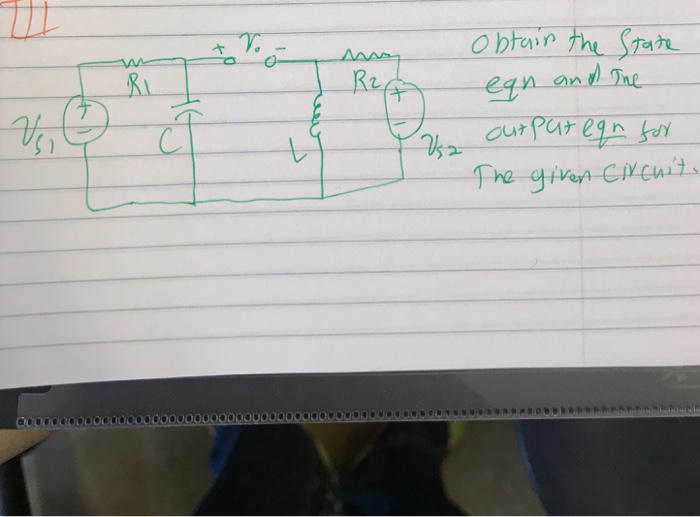 III
+ Vo -
R1
R2
+
-
VS1
C
L
+
-
VS2
Obtain the State
eqn and The
output eqn for
The given Circuit.